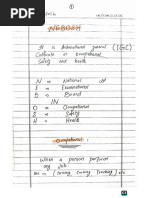 ①
NEBOSH
It is International general (IGC)
Certificate in Occupational
Safety and health
N = National
E = Examination
B = Board
IN
O = Occupational
S = Safety
H = Health
Occupational :
When a person perform
any job